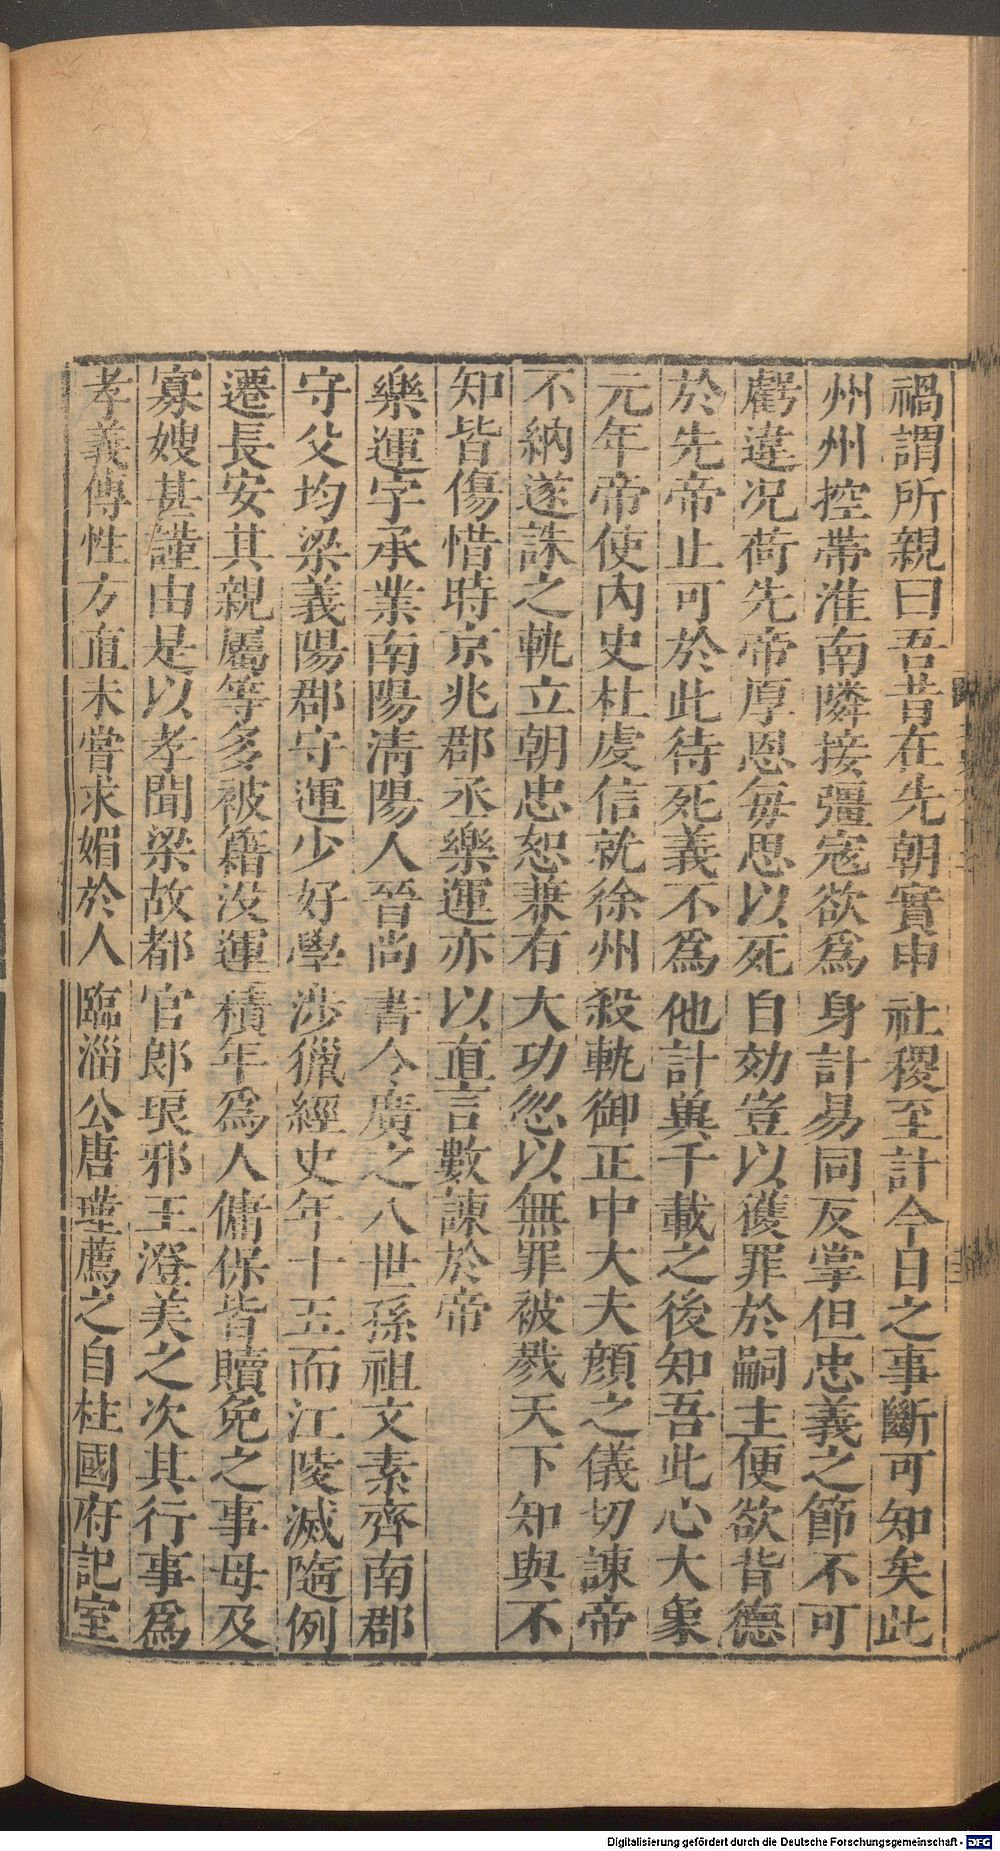 禍謂所親曰吾昔在先朝實申社稷至計今日之事斷可知矣此
州州控帶淮南隣接彊寇欲爲身計易同反掌但忠義之節不可
虧違况荷先帝厚恩每思以死自効豈以獲罪於嗣主便欲背德
於先帝止可於此待死義不爲他計兾千載之後知吾此心大象
元年帝使內史杜虔信就徐州殺軌御正中大夫顔之儀切諫帝
不納遂誅之軌立朝忠恕兼有大功忽以無罪被戮天下知與不
知皆傷惜時京兆郡丞樂運亦以直言數諫於帝
樂運字承業南陽淯陽人晉尚書令廣之八世孫祖文素齊南郡
守父均梁義陽郡守運少好學涉獵經史年十五而江陵滅隨例
遷長安其親屬等多被籍没運積年爲人傭保皆贖免之事母及
寡嫂甚謹由是以孝聞梁故都官郎琅邪王澄美之次其行事爲
孝義傳性方直未嘗求媚於人臨淄公唐瑾薦之自柱國府記室
Digitalisierung gefördert durch die Deutsche Forschungsgemeinschaft - DFG